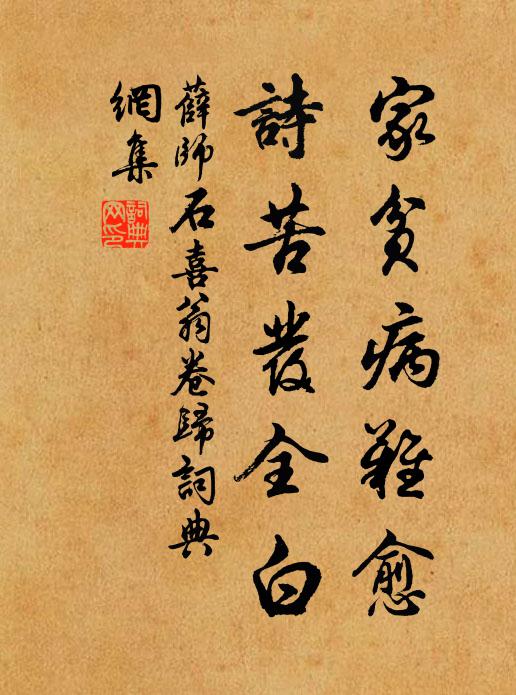 家貧病難愈
詩苦發全白
薛師石喜翁卷歸詞典
網集
詞典網印